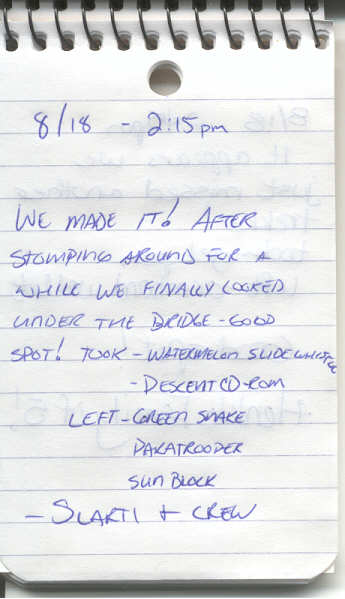 8/18 - 2:15pm
WE MADE IT! AFTER
STOMPING AROUND FOR A
WHILE WE FINALLY LOOKED
UNDER THE BRIDGE - GOOD
SPOT! TOOK - WATERMELON SLIDEWHISTLE
- DESCENT CD-ROM
LEFT - GREEN SNAKE
PARATROOPER
SUN BLOCK
- SLARTI + CREW